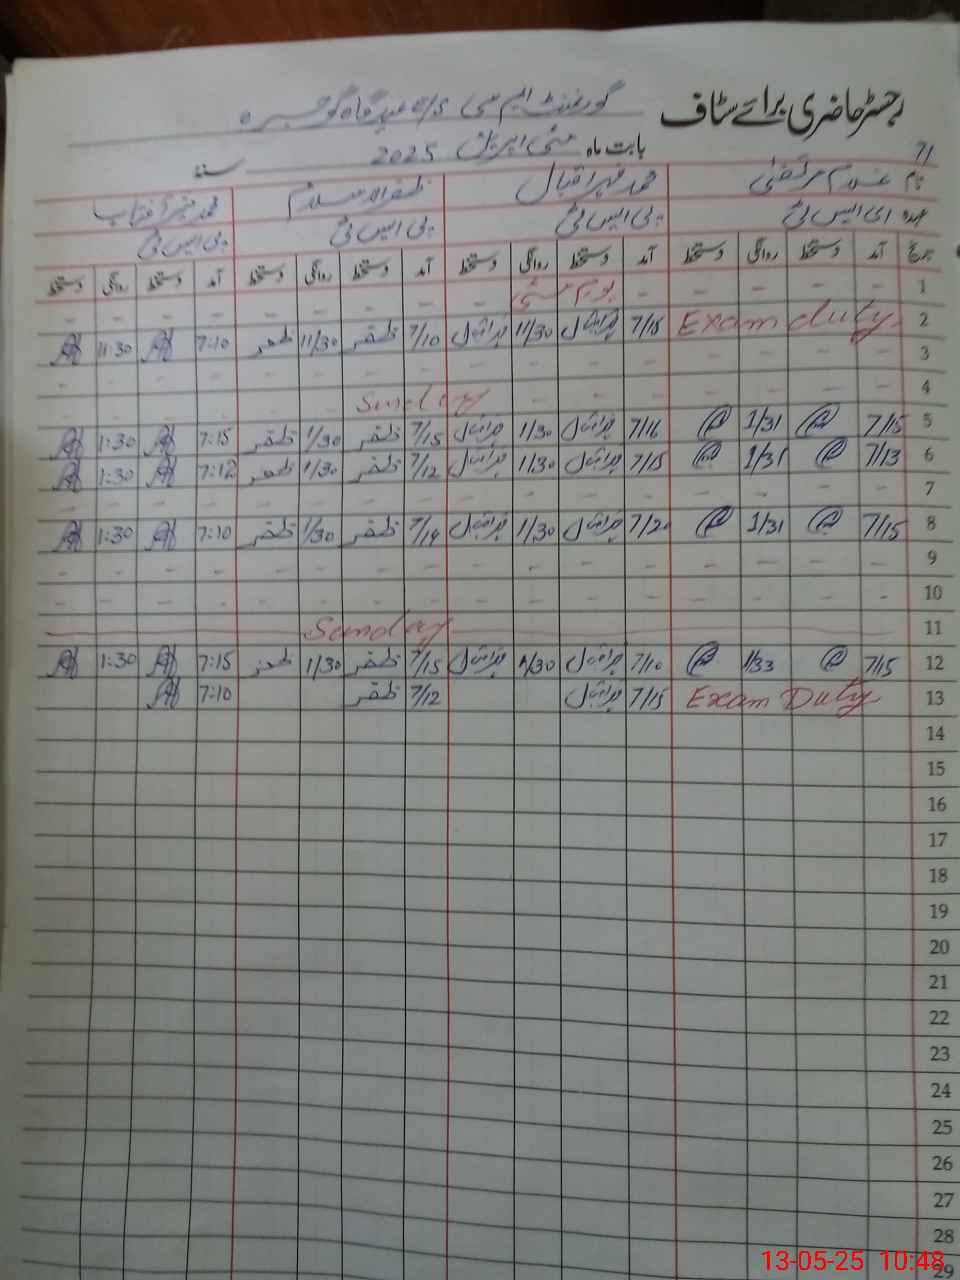 رجسٹر حاضری برائے سٹاف گورنمنٹ ایم سی E/S عیدگاہ گوجرہ
71
بابت ماہ مئی اپریل 2025 سنہ
نام غلام مرتضیٰ محمد ظہیر اقبال ظفر اسلام محمد منیر آفتاب
عہدہ ای ایس ٹی پی ایس ٹی پی ایس ٹی پی ایس ٹی
تاریخ آمد دستخط روانگی دستخط آمد دستخط روانگی دستخط آمد دستخط روانگی دستخط آمد دستخط روانگی دستخط
1 - - - یوم مئی - - - - - - - -
2 Exam duty 7/15 11/30 7/10 ظفر 11/30 ظفر 7:10 11:30
3 - - - - - - - - - - - - - - - -
4 - - - - - - - - Sunday - - - - -
5 7/15 1/31 7/16 1/30 7/15 ظفر 1/30 ظفر 7:15 1:30
6 7/13 1/31 7/15 1/30 7/12 ظفر 1/30 ظفر 7:12 1:30
7 - - - - - - - - - - - - - - - -
8 7/15 1/31 7/20 1/30 7/14 ظفر 1/30 ظفر 7:10 1:30
9 - - - - - - - - - - - - - - - -
10 - - - - - - - - - - - - - - - -
11 Sunday
12 7/15 1/33 7/10 1/30 7/15 ظفر 1/30 ظفر 7:15 1:30
13 Exam Duty 7/15 7/12 ظفر 7:10
14
15
16
17
18
19
20
21
22
23
24
25
26
27
28
29
13-05-25 10:48